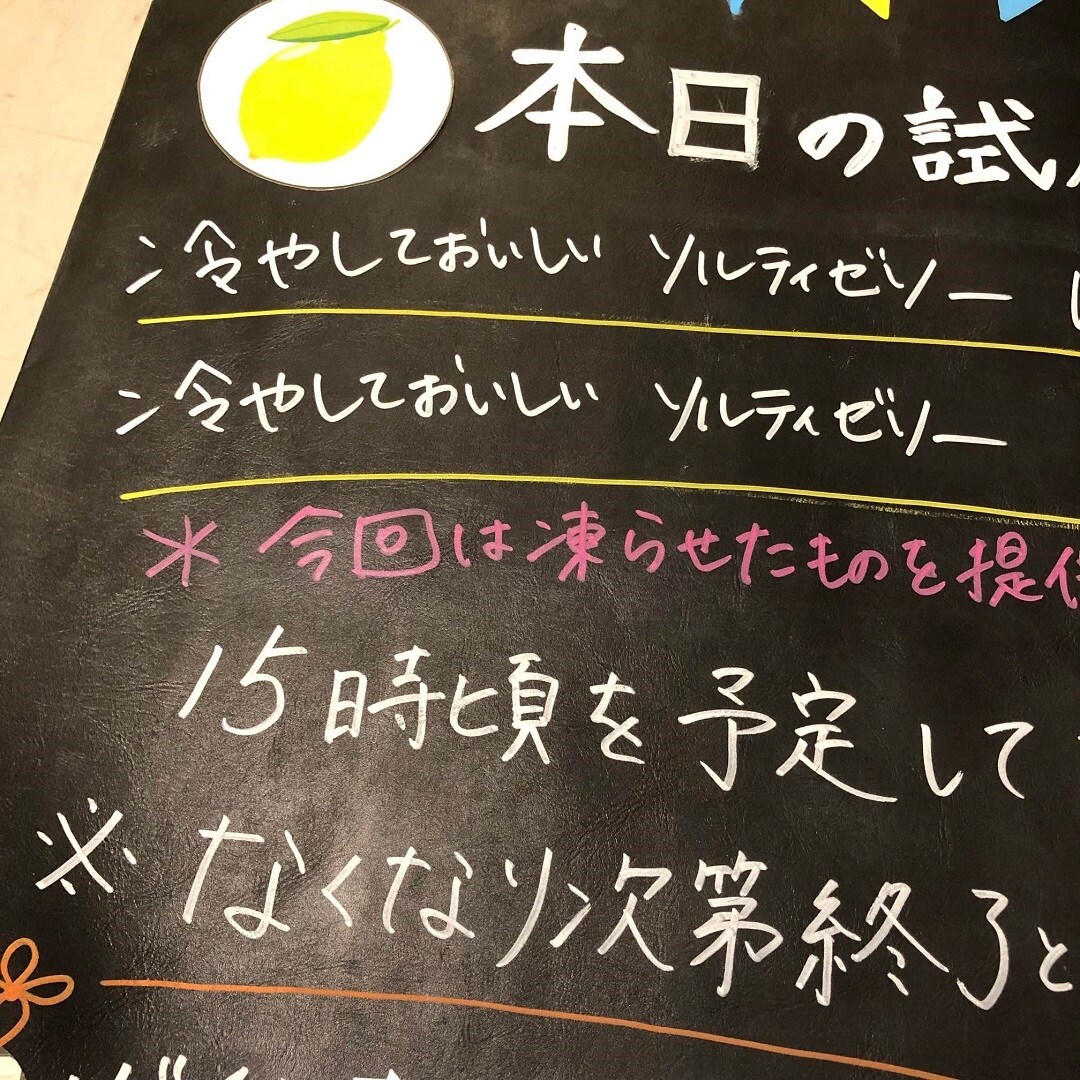 本日の試
冷やしておいしい ソルティゼリー
冷やしておいしい ソルティゼリー
* 今回は凍らせたものを提供
15時頃を予定して
※ なくなり次第終了と